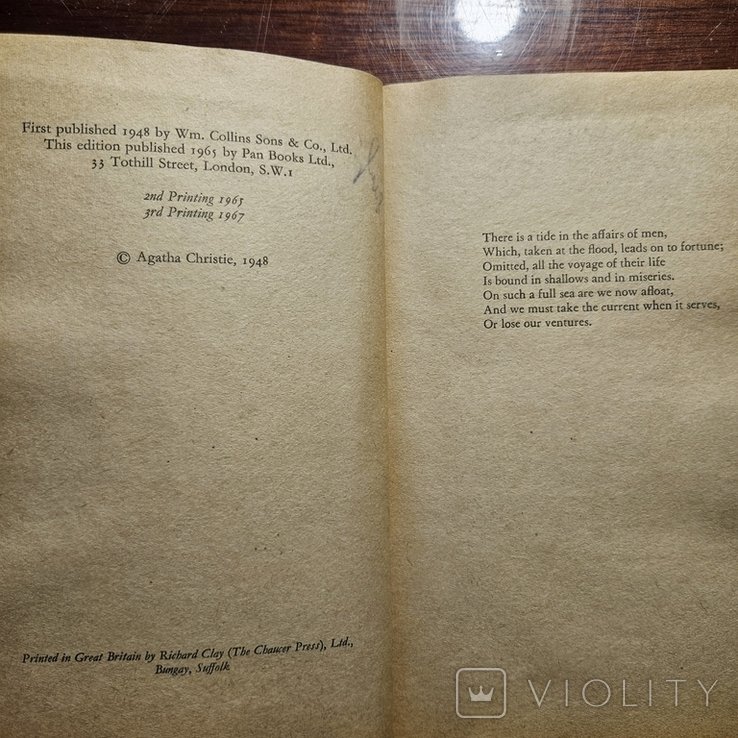 First published 1948 by Wm. Collins Sons & Co., Ltd.
This edition published 1965 by Pan Books Ltd.,
33 Tothill Street, London, S.W.1
2nd Printing 1965
3rd Printing 1967
© Agatha Christie, 1948
Printed in Great Britain by Richard Clay (The Chaucer Press), Ltd.,
Bungay, Suffolk
There is a tide in the affairs of men,
Which, taken at the flood, leads on to fortune;
Omitted, all the voyage of their life
Is bound in shallows and in miseries.
On such a full sea are we now afloat,
And we must take the current when it serves,
Or lose our ventures.
VIOLITY